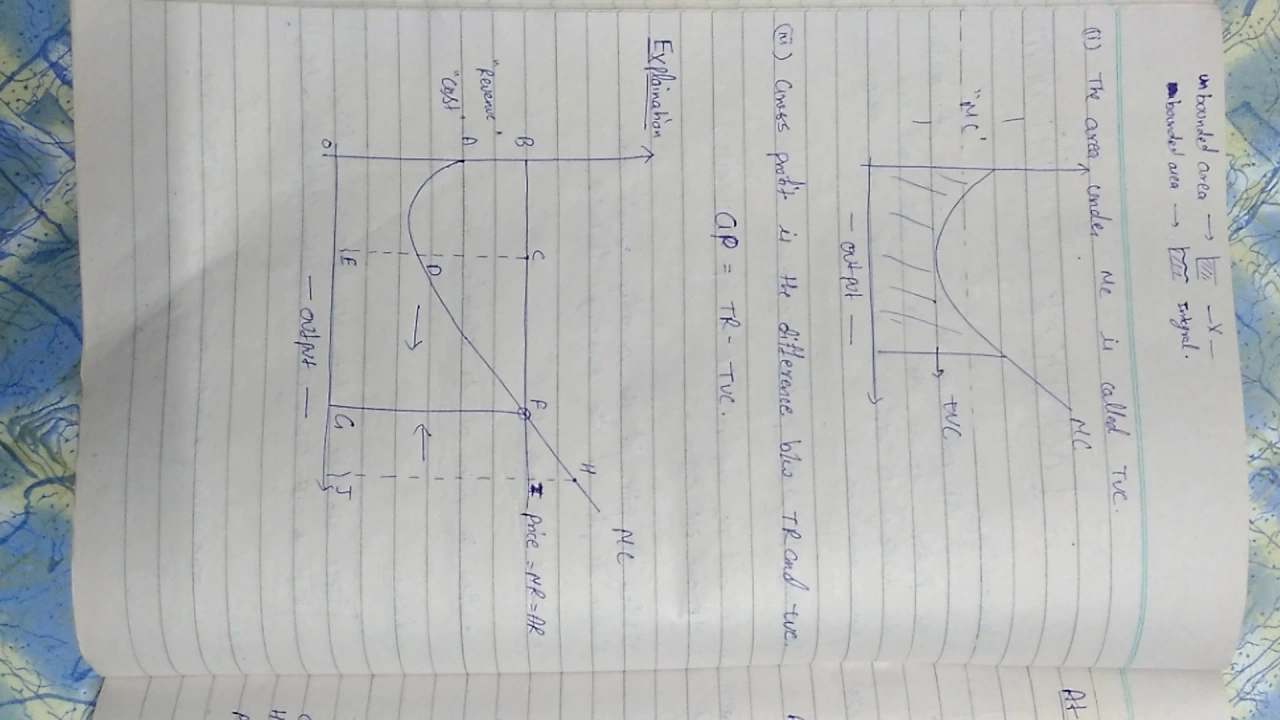 unbounded area → — x —
unbounded area → Integral.
(ii) The area under MC is called TVC.
"MC"
MC
TVC
— output —
(iii) Gross profit is the difference b/w TR and TVC.
GP = TR - TVC.
Explaination
"Revenue"
"Cost"
MC
H
B C F I price = MR = AR
A
D
O E G J
— output —
At